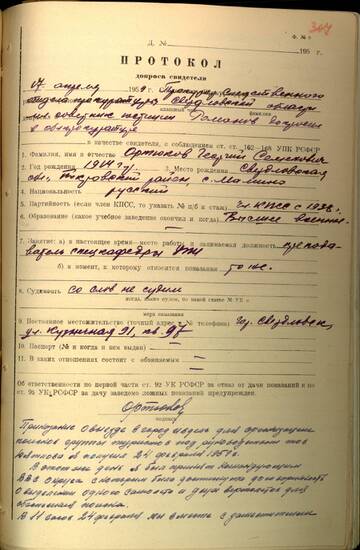 307
Ф. № 6
Д. №
195 г.
ПРОТОКОЛ
допроса свидетеля
апреля 1959 Прокурор Следственного
отдела прокуратуры Свердловской области
мл. советник юстиции Романов допросил
в облпрокуратуре
в качестве свидетеля, с соблюдением ст. ст. 162—168 УПК РСФСР
1. Фамилия, имя и отчество Ортюков Георгий Семенович
2. Год рождения 1914 г. 3. Место рождения Свердловская
обл. район, с.
4. Национальность русский
5. Партийность (если член КПСС, то указать № п/б и стаж) чл КПСС с 1938.
6. Образование (какое учебное заведение окончил и когда) Высшее военное
7. Занятие: а) в настоящее время—место работы и занимаемая должность препода-
ватель спецкафедры
б) в момент, к которому относятся показания то же.
8. Судимость со слов не судим
когда, каким судом, по какой статье УК и
мера наказания
9. Постоянное местожительство (точный адрес и № телефона) гор. Свердловск,
ул. 31, кв. 97
10. Паспорт (№ и когда и кем выдан) —
11. В каких отношениях состоит с обвиняемым —
Об ответственности по первой части ст. 92 УК РСФСР за отказ от дачи показаний и по
ст. 95 УК РСФСР за дачу заведомо ложных показаний предупрежден.
Ортюков
подпись
Приказание о выезде в город Ивдель для организации
поисков группы туристов под руководством тов
Дятлова я получил 24 февраля 1959 г.
В этот же день я был принят командующим
ВВС округа с которым была достигнута договоренность
о выделении одного самолета и двух вертолетов для
поиска.
В 11 часов 24 февраля мы вместе с заместителем